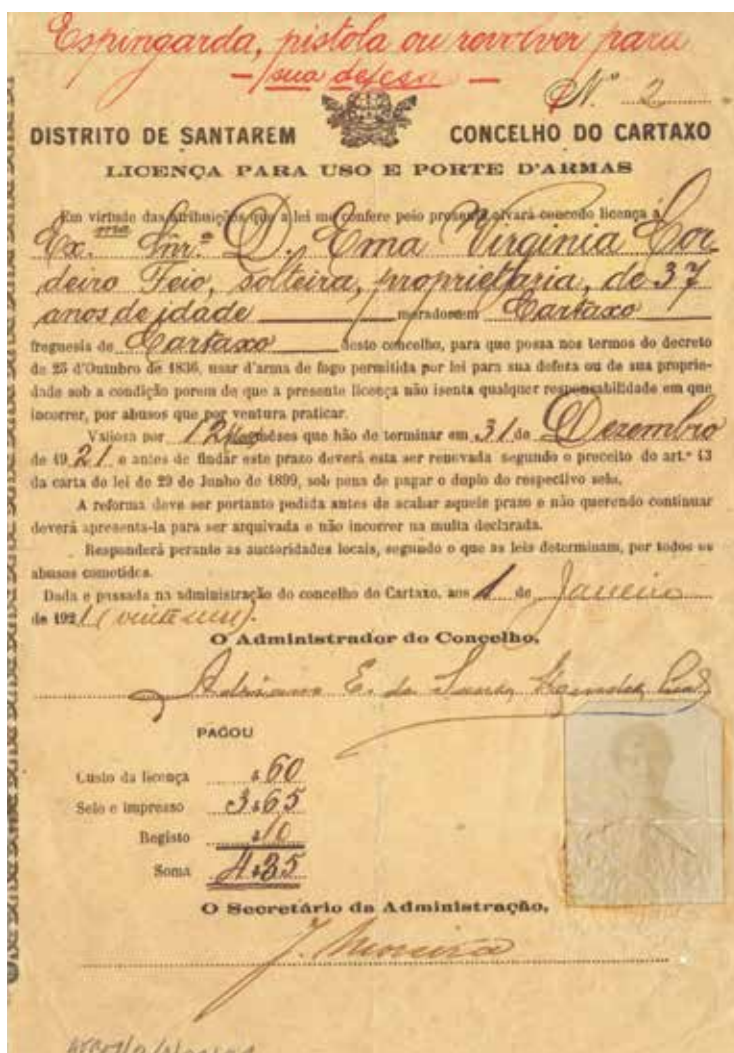 Espingarda, pistola ou revolver para
— sua defesa —
Nº 2
DISTRITO DE SANTAREM CONCELHO DO CARTAXO
LICENÇA PARA USO E PORTE D'ARMAS
Em virtude das atribuições que a lei me confere pelo presente alvará concedo licença á
Ex.ma Snr.ª D. Ema Virginia Cor-
deiro Feio, solteira, proprietaria, de 37
anos de idade morador em Cartaxo
freguesia de Cartaxo deste concelho, para que possa nos termos do decreto
de 25 d'Outubro de 1836, usar d'arma de fogo permitida por lei para sua defeza ou de sua proprie-
dade sob a condição porem de que a presente licença não isenta qualquer responsabilidade em que
incorrer, por abusos que por ventura praticar.
Valiosa por 12 mêses que hão de terminar em 31 de Dezembro
de 1921 e antes de findar este prazo deverá esta ser renovada segundo o preceito do art.º 13
da carta de lei de 29 de Junho de 1899, sob pena de pagar o duplo do respectivo selo.
A reforma deve ser portanto pedida antes de acabar aquele prazo e não querendo continuar
deverá apresenta-la para ser arquivada e não incorrer na multa declarada.
Responderá perante as auctoridades locais, segundo o que as leis determinam, por todos os
abusos cometidos.
Dada e passada na administração do concelho do Cartaxo, aos 1 de Janeiro
de 1921 (vinte um).
O Administrador do Concelho,
Adriano E. de
PAGOU
Custo da licença $60
Selo e impresso 3$65
Registo $10
Soma 4$35
O Secretário da Administração,
J. Moreira